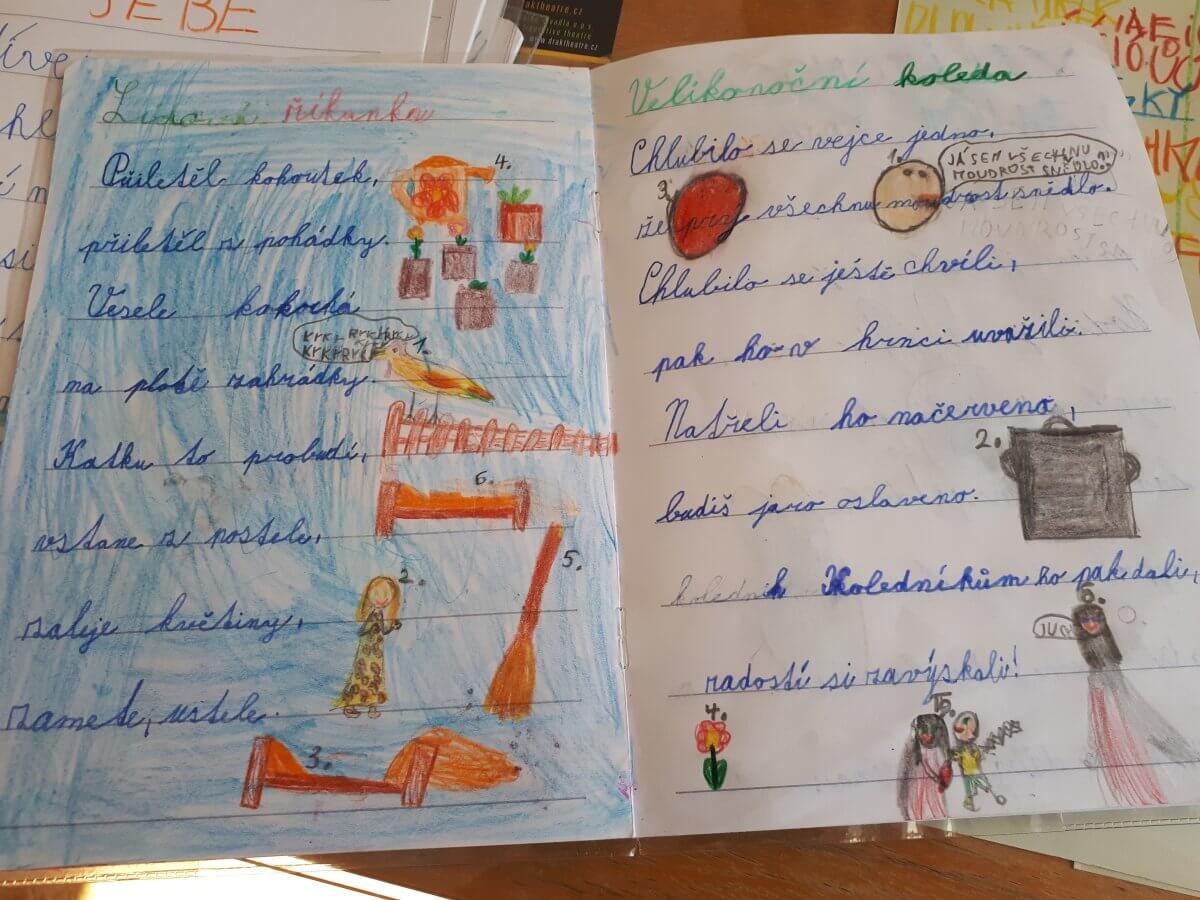 JEBE
draktheatre.cz
www.draktheatre.cz
Lidová říkanka
Přiletěl kohoutek,
4.
přiletěl z pohádky.
Vesele kokrhá
KYKYRYKY
1.
na plotě zahrádky.
Katku to probudí,
6.
vstane z postele,
5.
2.
zalije květiny,
zamete, ustele.
3.
Velikonoční koleda
Chlubilo se vejce jedno,
1.
JÁ SEM VŠECHNU
MOUDROST SNĚDLO.
3.
že prý všechnu moudrost snědlo.
Chlubilo se ještě chvíli,
pak ho v hrnci uvařili.
Natřeli ho načerveno,
2.
budiš jaro oslaveno.
koledník Koledníkům ho pak dali,
6.
radostí si zavýskali!
4.
5.